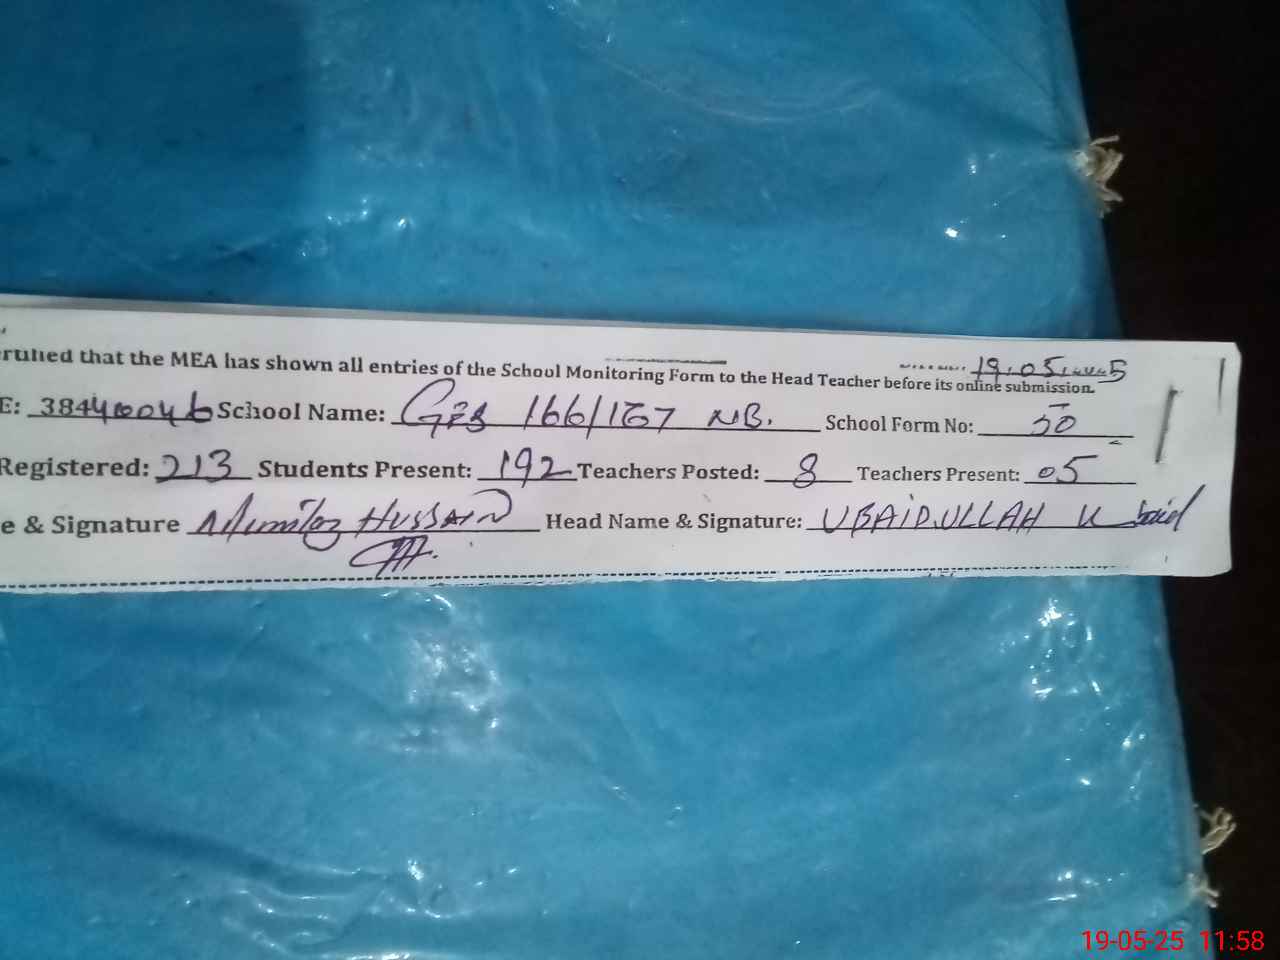 19.05.2025
rtified that the MEA has shown all entries of the School Monitoring Form to the Head Teacher before its online submission.
E: 38440046 School Name: GPS 166/167 NB. School Form No: 50
Registered: 213 Students Present: 192 Teachers Posted: 8 Teachers Present: 05
e & Signature Mumtaz HUSSAIN Head Name & Signature: UBAIDULLAH Ubaid
19-05-25 11:58